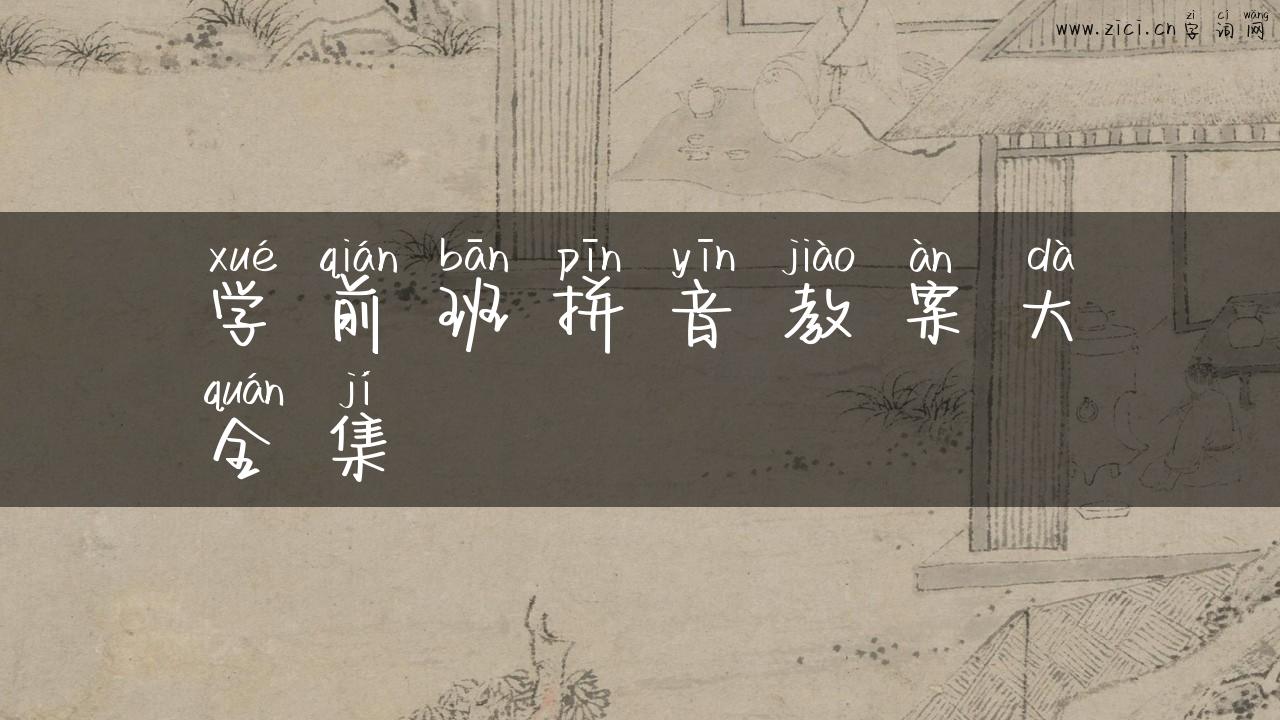 zì cí wǎng
www.zici.cn 字词网
xué qián bān pīn yīn jiào àn dà
学前班拼音教案大
quán jí
全集